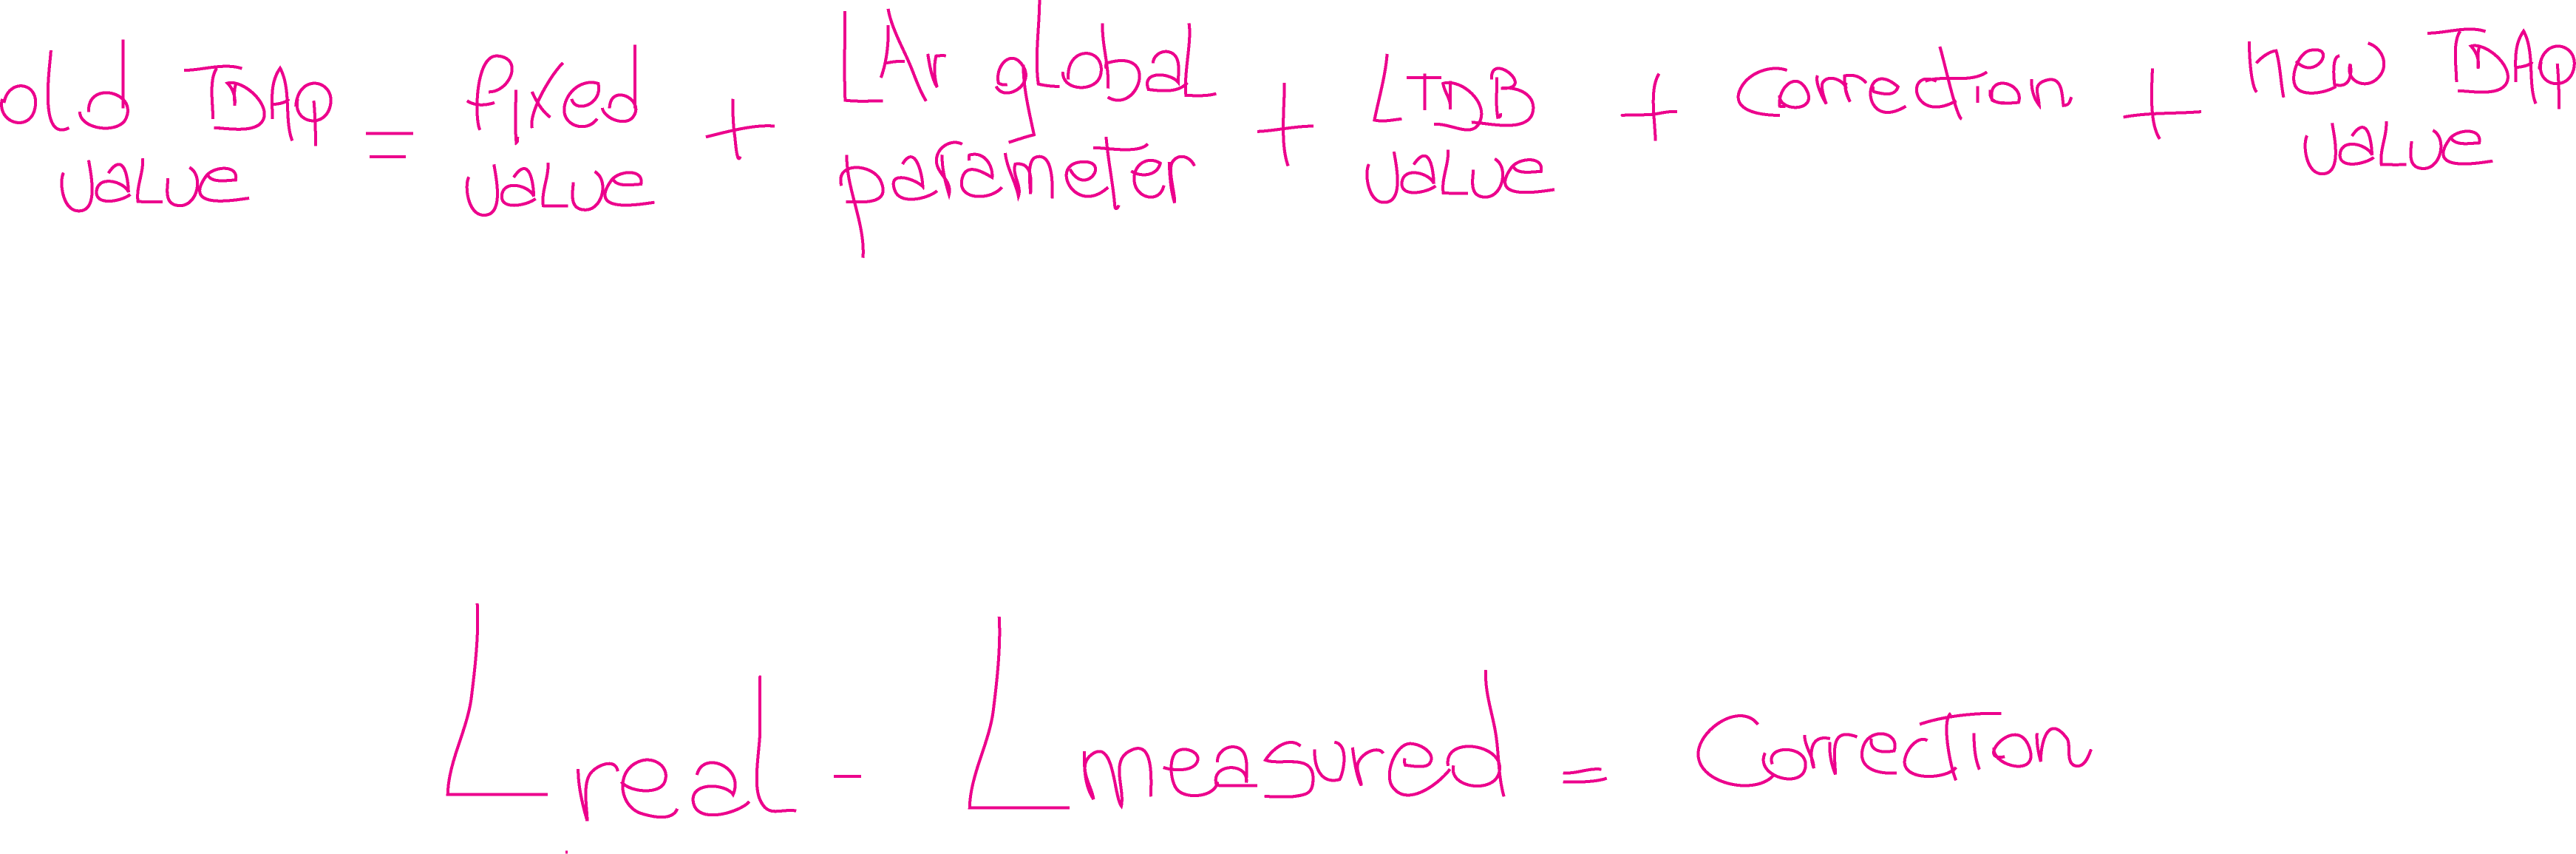 old TDAQ value = fixed value + LAr global parameter + LTDB value + Correction + new TDAQ value
Lreal - Lmeasured = Correction